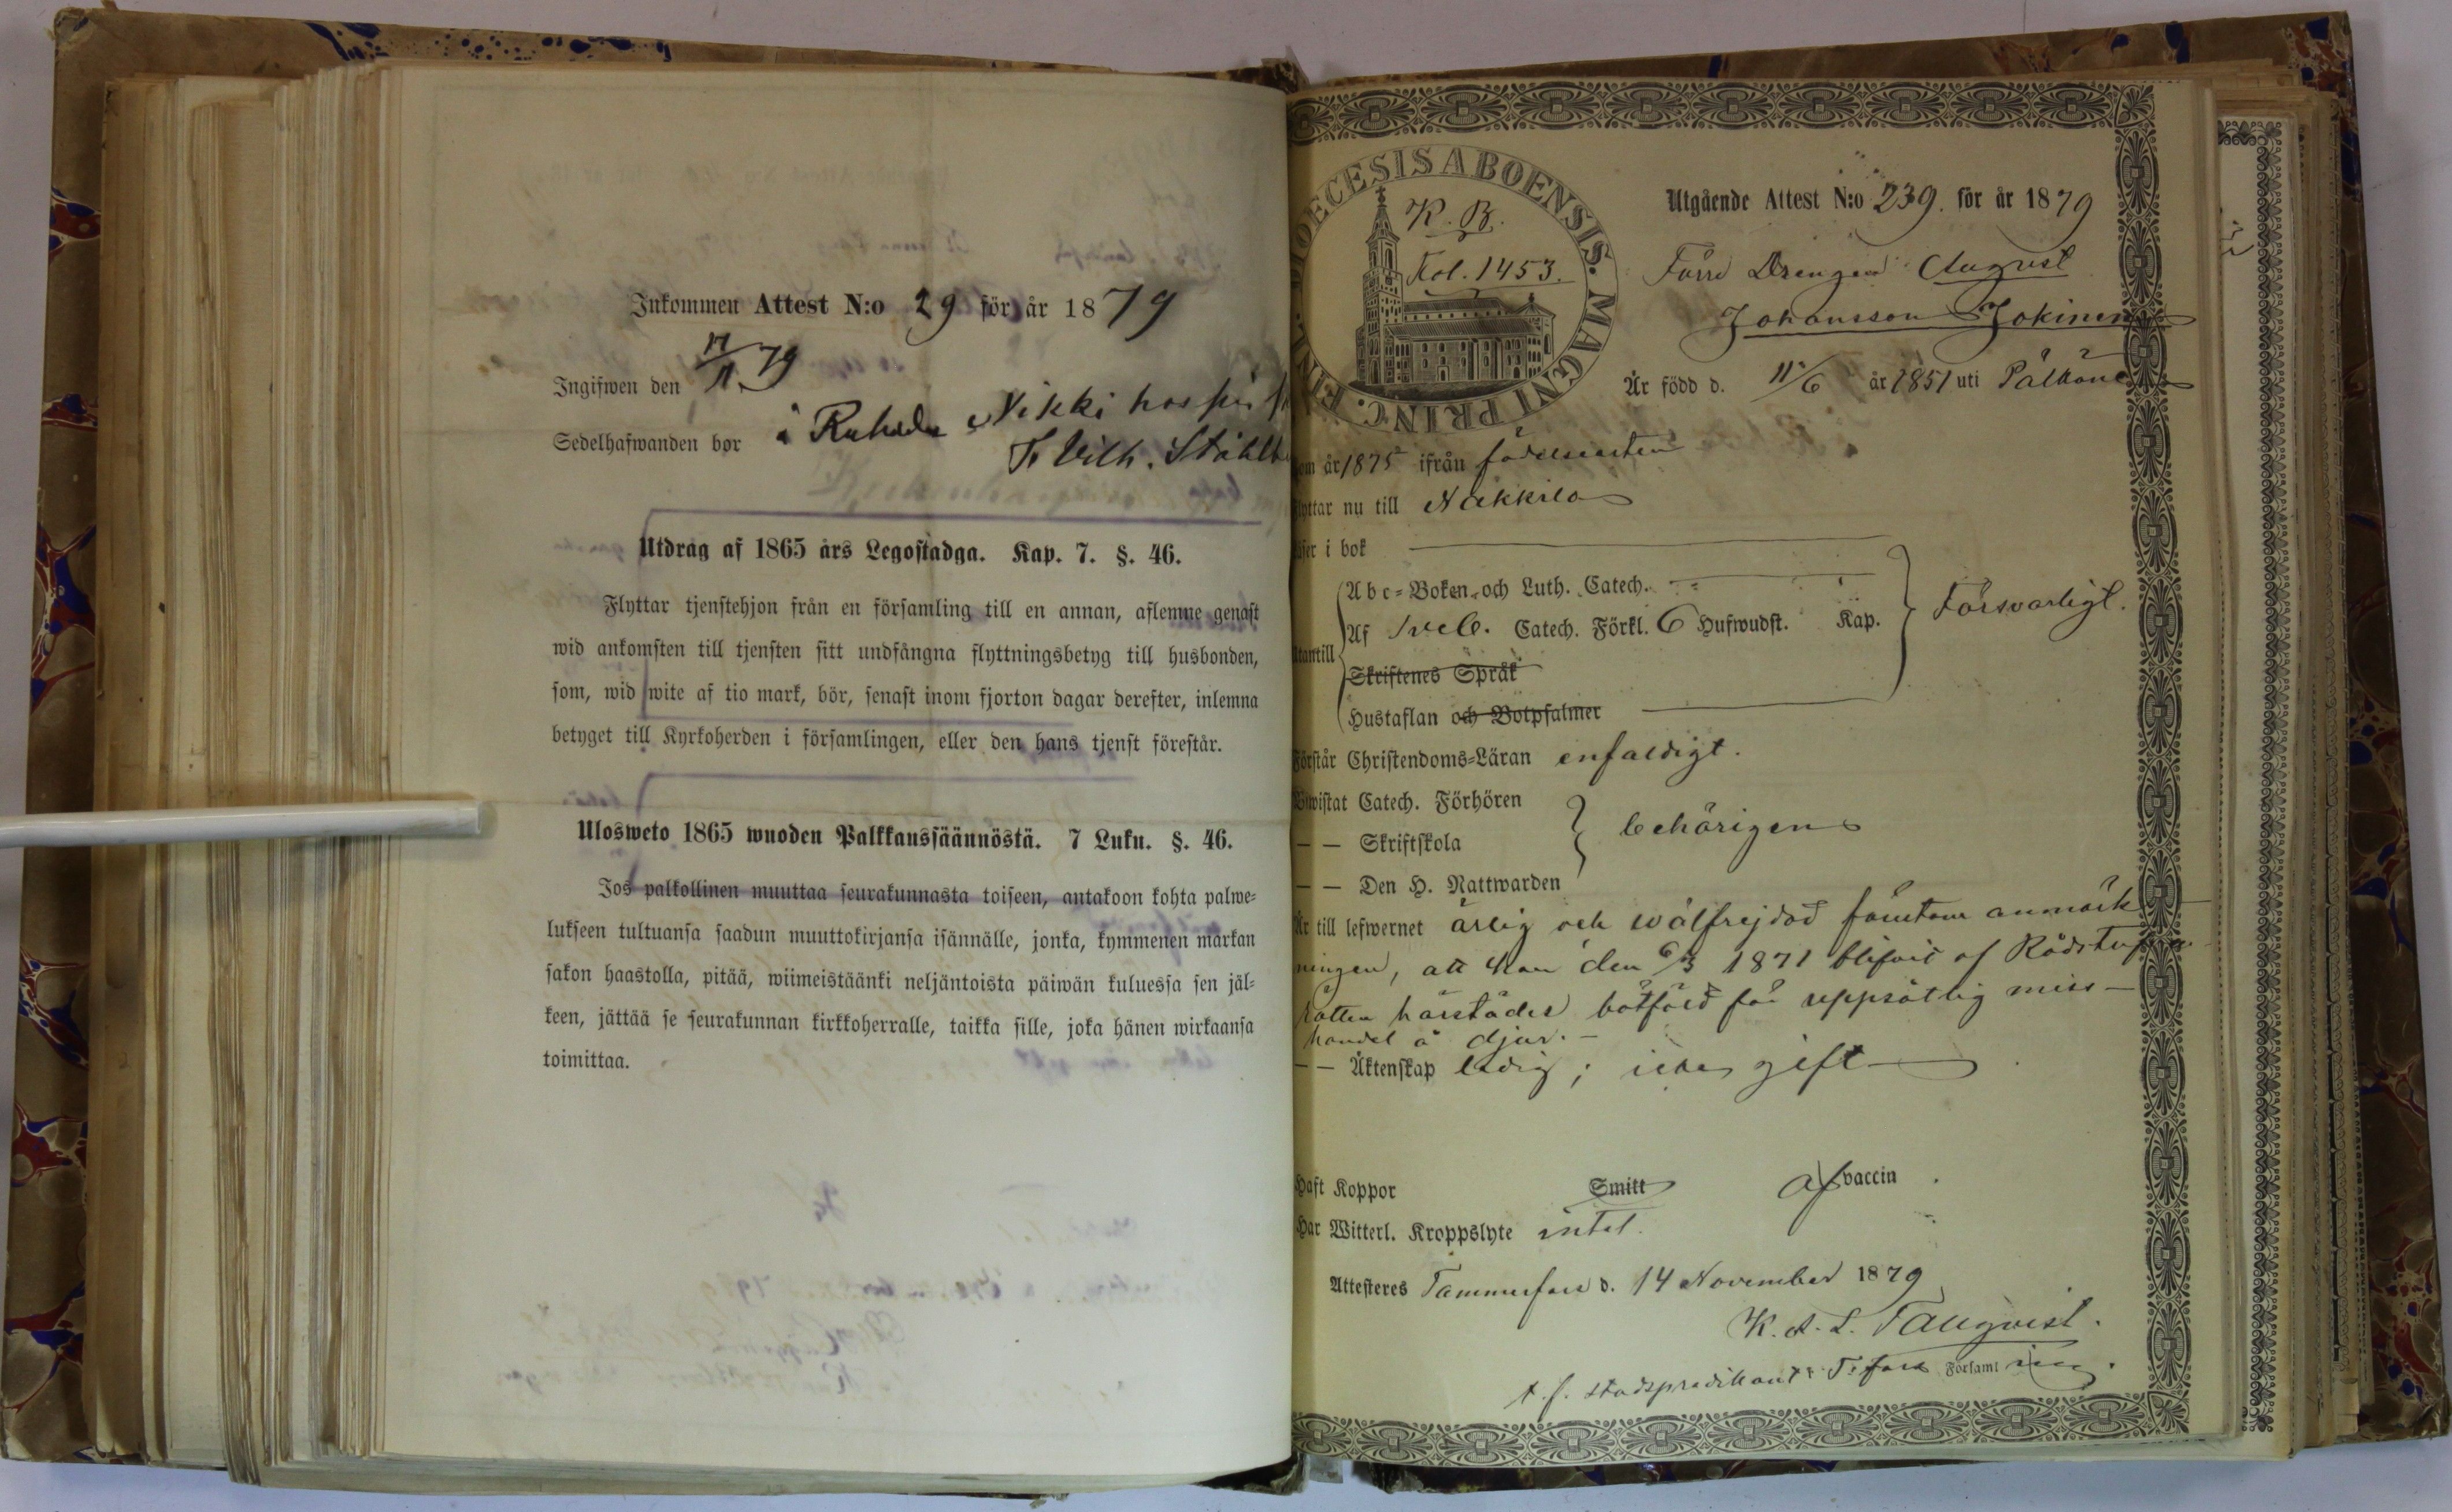 Inkommen Attest N:o 29 för år 1879
Ingifwen den 17/11 79
Sedelhafwanden bor å Nikki hos
Vilh.
Utdrag af 1865 års Legostadga. Kap. 7. §. 46.
Flyttar tjenstehjon från en församling till en annan, aflemne genast
wid ankomsten till tjensten sitt undfångna flyttningsbetyg till husbonden,
som, wid wite af tio mark, bör, senast inom fjorton dagar derefter, inlemna
betyget till Kyrkoherden i församlingen, eller den hans tjenst förestår.
Ulosweto 1865 wuoden Palkkanssäännöstä. 7 Luku. §. 46.
Jos palkollinen muuttaa seurakunnasta toiseen, antakoon kohta palwe-
lukseen tultuansa saadun muuttokirjansa isännälle, jonka, kymmenen markan
sakon haastolla, pitää, wiimeistäänki neljäntoista päiwän kuluessa sen jäl-
keen, jättää se seurakunnan kirkkoherralle, taikka sille, joka hänen wirkaansa
toimittaa.
DIOECESIS ABOENSIS. MAGNI PRINC. FINL.
K. B.
Fol. 1453.
Utgående Attest N:o 239. för år 1879
Förre Drengen August
Johansson Jokinen
Är född d. 11/6 år 1851 uti Pälkäne
om år 1875 ifrån födelseorten
Flyttar nu till Nakkila
Läser i bok
Utantill
Abc-Boken och Luth. Catech.
Af Sveb. Catech. Förkl. 6 Hufwudst. Kap.
Försvarligt.
Skriftenes Språk
Hustaflan och Botpsalmer
Förstår Christendoms-Läran enfaldigt.
Biwistat Catech. Förhören
— — Skriftskola
behörigen
— — Den H. Nattwarden
Är till lefwernet ärlig och wälfrejdad förutom anmärk
ningen, att han den 6/3 1871 blifvit af Rådstufvu
rätten härstädes bötfäld för uppsåtlig miss-
handel å djur. —
— — Äktenskap ledig; icke gift
Haft Koppor Smitt af vaccin
Har Witterl. Kroppslyte intet.
Attesteres Tammerfors d. 14 November 1879
K. A. L. Tallqvist.
t. f. stadspredikant i T:fors Församling.